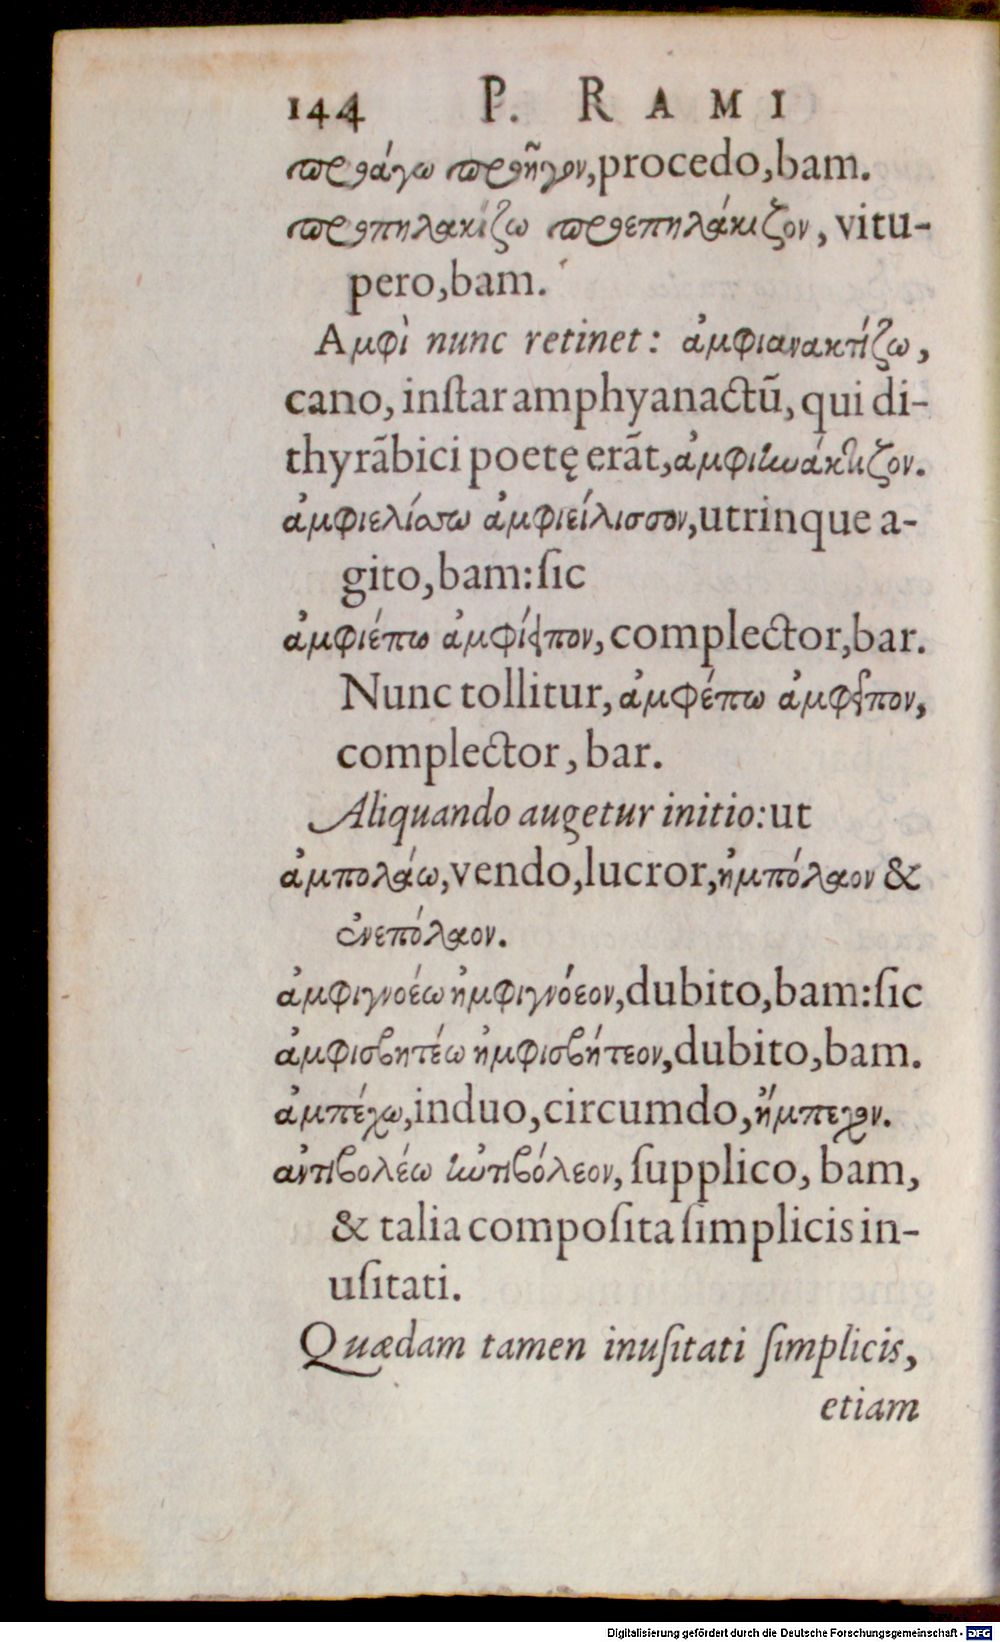 144 P. RAMI
προάγω προῆγον, procedo, bam.
προπηλακίζω προεπηλάκιζον, vitu-
pero, bam.
Αμφὶ nunc retinet: ἀμφιανακτίζω,
cano, inſtar amphyanactũ, qui di-
thyrãbici poetę erãt, ἀμφιωάκτιζον.
ἀμφιελίσσω ἀμφιείλισσον, utrinque a-
gito, bam: ſic
ἀμφιέπω ἀμφίειπον, complector, bar.
Nunc tollitur, ἀμφέπω ἀμφεῖπον,
complector, bar.
Aliquando augetur initio: ut
ἀμπολάω, vendo, lucror, ἠμπόλαον &
ἐνεπόλαον.
ἀμφιγνοέω ἠμφιγνόεον, dubito, bam: ſic
ἀμφισβητέω ἠμφισβήτεον, dubito, bam.
ἀμπέχω, induo, circumdo, ἤμπεχον.
ἀντιβολέω ἠντιβόλεον, ſupplico, bam,
& talia compoſita ſimplicis in-
uſitati.
Quædam tamen inuſitati ſimplicis,
etiam
Digitalisierung gefördert durch die Deutsche Forschungsgemeinschaft - DFG